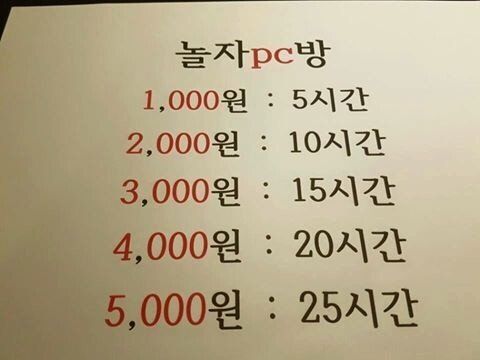 놀자pc방
1,000원 : 5시간
2,000원 : 10시간
3,000원 : 15시간
4,000원 : 20시간
5,000원 : 25시간